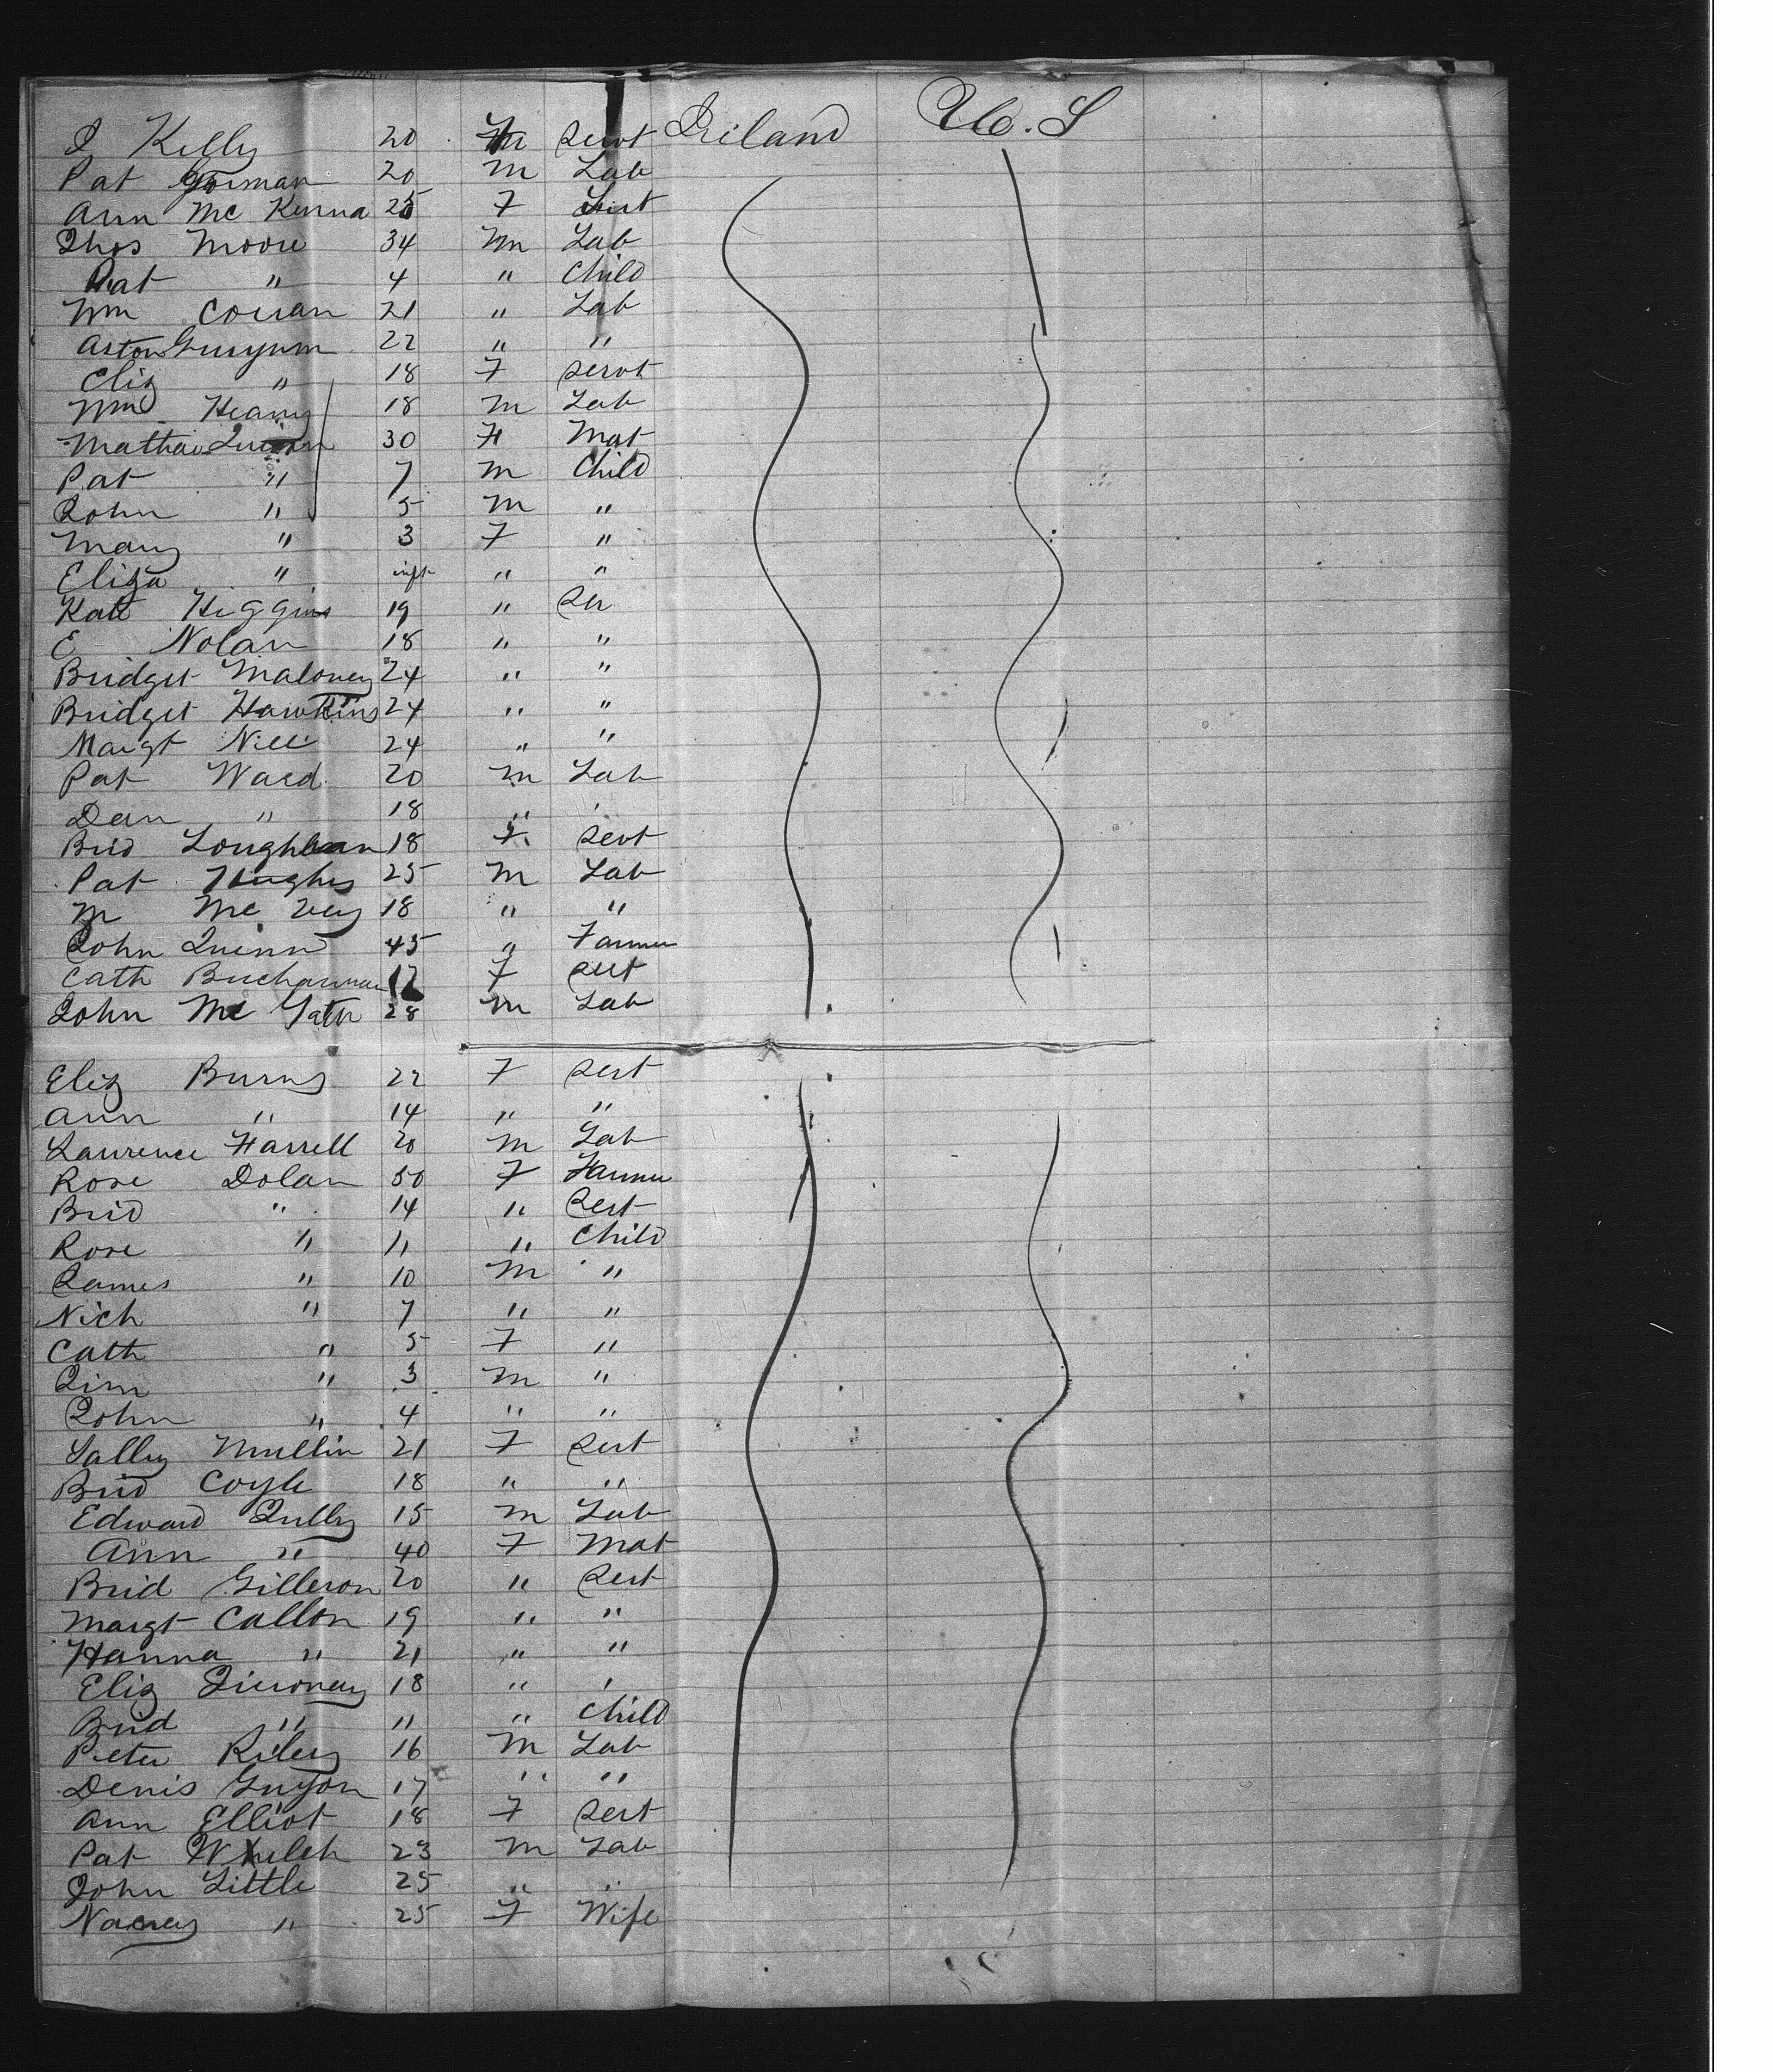 J Kelly 20 M Servt Ireland U.S
Pat Gorman 20 M Lab
Ann McKenna 25 F Sert
Thos Moore 34 M Lab
Pat " 4 " Child
Wm Corran 21 " Lab
22 " "
Eliz " 18 F Servt
Wm Heany 18 M Lab
30 F Mat
Pat " 7 M Child
John " 5 M "
Mary " 3 F "
Eliza " inft " "
Kate Higgins 19 " Ser
E Nolan 18 " "
Bridget Maloney 24 " "
Bridget Hawkins 24 " "
Margt Neill 24 " "
Pat Ward 20 M Lab
Dan " 18 "
Brid Loughlean 18 F Sevt
Pat Hughes 25 M Lab
M McVey 18 " "
John Quinn 45 " Farmer
Cath Buchannan 12 F Sert
John Mc 28 M Lab
Eliz Burns 22 F Sert
Ann " 14 " "
Lawrence Farrell 20 M Lab
Rose Dolan 50 F Farmer
Brid " 14 " Sert
Rose " 11 " Child
James " 10 M "
Nich " 7 " "
Cath " 5 F "
Jim " 3 M "
John " 4 " "
Sally Mullin 21 F Sert
Brid Coyle 18 " "
Edward Tully 15 M Lab
Ann " 40 F Mat
Brid Gilleron 20 " Sert
Margt Callon 19 " "
Hanna " 21 " "
Eliz 18 " "
Brid " 11 " Child
Peter Riley 16 M Lab
Denis Guyon 17 " "
Ann Elliot 18 F Sert
Pat Whelch 23 M Lab
John Little 25 " "
Nancy " 25 F Wife